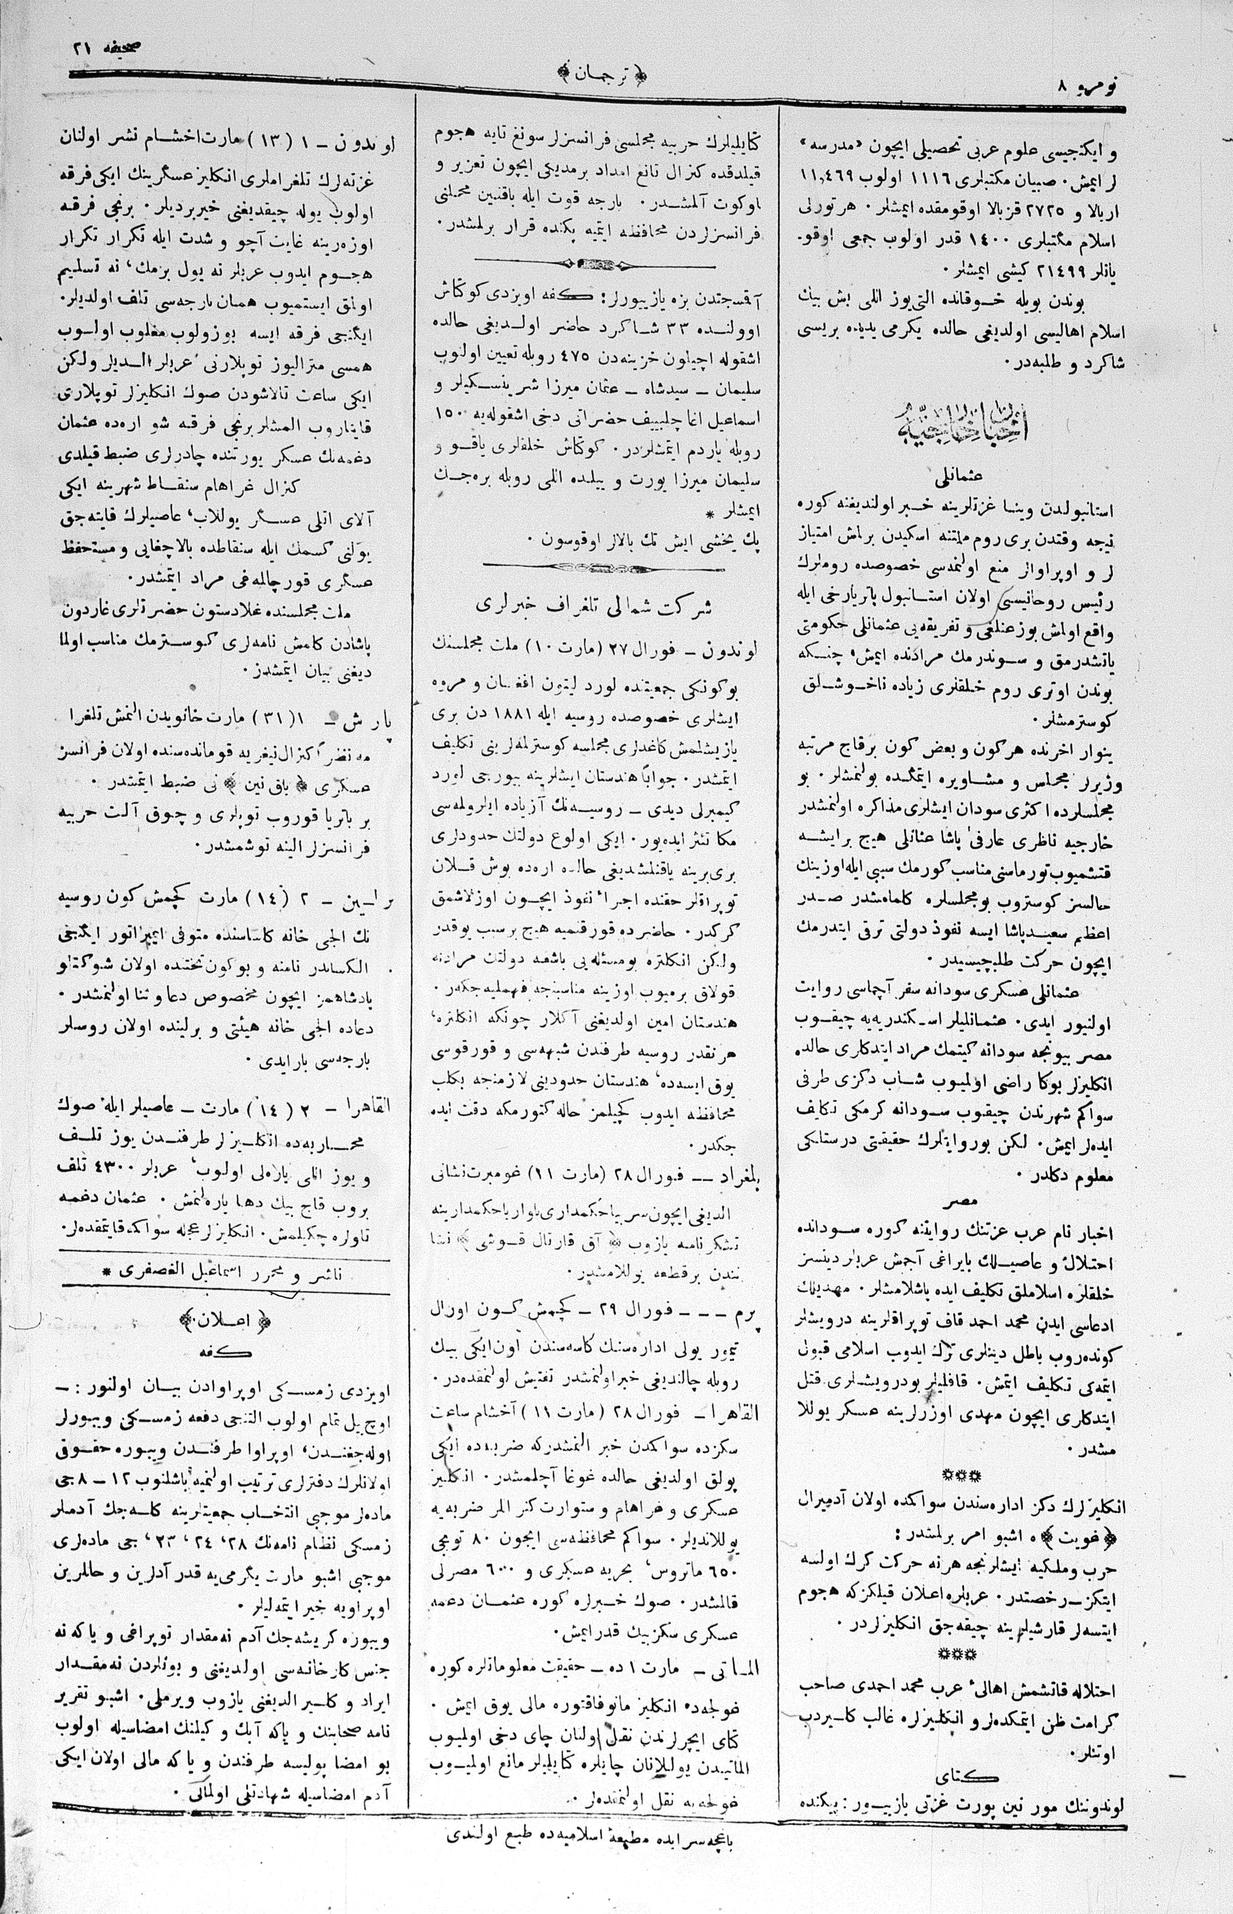 نومرو ٨
﴿ ترجمان ﴾
صحیفه ٢١
و ایکنجیسی علوم عربی تحصیلی ایچون «مدرسه»
لر ایمش. صبیان مکتبلری ١١١٦ اولوب ١١,٤٦٩
ار بالا و ٢٧٢٥ قز بالا اوقومقده ایمشلر. هر تورلی
اسلام مکتبلری ١٤٠٠ قدر اولوب جمعی اوقو-
یانلر ٢١٤٩٩ کیشی ایمشلر.
بوندن بویله خوقانده التی یوز اللی بش بیك
اسلام اهالیسی اولدیغی حالده یکرمی یدیده بریسی
شاکرد و طلبه در.
اخبارات خارجیه
عثمانلی
استانبولدن وینا غزتلرینه خبر اولندیغنه کوره
نیجه وقتدن بری روم ملتنه اسکیدن برلمش امتیاز
لر و اوپراوالر منع اولنمه‌سی خصوصده روملرك
رئیس روحانیسی اولان استانبول پاتریارخی ایله
واقع اولمش بوزعنلغی و تفریقه‌یی عثمانلی حکومتی
یاتشدرمق و سوندرمك مرادنده ایمش، چنکه
بوندن اوتری روم خلقلری زیاده ناخوشلق
کوسترمشلر.
ینوار اخرنده هرکون و بعض کون برقاچ مرتبه
وزیرلر مجلس و مشاویره ایتمکده بولنمشلر. بو
مجلسلرده اکثری سودان ایشلری مذاکره اولنمشدر
خارجیه ناظری عارفی پاشا عثمانلی هیچ بر ایشه
قتشمیوب تورماسنی مناسب کورمك سببی ایله اوزینك
حالسز کوستروب بومجلسلره کلمامشدر صدر
اعظم سعید پاشا ایسه نفوذ دولتی ترقی ایتدرمك
ایچون حرکت طلبچیسیدر.
عثمانلی عسکری سودانه سفر آچماسی روایت
اولنیور ایدی. عثمانلیلر اسکندریه‌یه چیقوب
مصر بیونجه سودانه کیتمك مراد ایتدکاری حالده
انکلیزلر بوکا راضی اولمیوب شاب دکزی طرفی
سواکم شهرندن چیقوب سودانه کرمکی تکلیف
ایده‌لر ایمش. لکن بوروایتلرك حقیقتی درستلکی
معلوم دکلدر.
مصر
اخبار نام عرب غزتنك روایتنه کوره سودانده
احتلال و عاصیلك بایراغی آچمش عربلر دینسز
خلقلره اسلاملق تکلیف ایده باشلامشلر. مهدیلك
ادعاسی ایدن محمد احمد قاف توپراقلرینه درویشلر
کونده‌روب باطل دینلری ترك ایدوب اسلامی قبولی
ایتمه‌کی تکلیف ایتمش. قافلیلر بودرویشلری قتل
ایتدکاری ایچون مهدی اوزرلرینه عسکر یوللا
مشدر.
***
انکلیزلرك دکز اداره‌سندن سواکمده اولان آدمیرال
﴿غویت﴾ ه اشبو امر برلمشدر:
حرب وملکیه ایشلرنجه هرنه حرکت کرك اولسه
ایتکز رخصتدر. عربلره اعلان قیلکزکه هجوم
ایتسه‌لر قارشیلرینه چیقه‌جق انکلیزلردر.
***
احتلاله قاتشمش اهالیٔ عرب محمد احمدی صاحب
کرامت ظن ایتمکده‌لر و انکلیزلره غالب کلیردب
اوتنلر.
کتای
لوندوننك مورنین پورت غزتی یازییور: پیکنده
کتایلیلرك حربیه مجلسی فرانسزلر سونغ تایه هجوم
قیلدقده کنرال تانغ امداد برمدیکی ایچون تعزیر و
اوکوت آلمشدر. بارچه قوت ایله باقنین محملنی
فرانسزلردن محافظه ایتمیه پکنده قرار برلمشدر.
آقسجتدن بزه یازییورلر: کفه اویزدی کوکتاش
اوولنده ٣٣ شاکرد حاضر اولدیغی حالده
اشقوله اچیلون خزینه‌دن ٤٧٥ روبله تعیین اولنوب
سلیمان – سیدشاه – عثمان میرزا شرینسکیلر و
اسماعیل اغا چلبییف حضراتی دخی اشقوله‌یه ١٥٠
روبله یاردم ایتمشلردر. کوکتاش خلقلری یاقو و
سلیمان میرزا یورت و ییلده اللی روبله بره‌جك
ایمشلر *
پك یخشی ایش تك بالالر اوقوسون.
شرکت شمالی تلغراف خبرلری
لوندون – فورال ٢٧ (مارت ١٠) ملت مجلسنك
بوکونکی جمعیتنده لورد لیتون افغان و مروه
ایشلری خصوصده روسیه ایله ١٨٨١ دن بری
یازیشلمش کاغدلری مجلسه کوسترلمه‌لر بنی تکلیف
ایتمشدر. جوابا هندستان ایشلرینه بیورجی لورد
کیمبرلی دیدی – روسیه‌نك آزیاده ایلرولمه‌سی
مکا تئثر ایده‌یور. ایکی اولوع دولتك حدودلری
بری برینه یاقنلشدیغی حالده اره‌ده بوش قلان
توپراقلر حقنده اجراٴ نفوذ ایچون اوزلاشمق
کرکدر. حاضرده قورقنمیه هیچ برسبب یوقدر
ولکن انکلتره بومسئله‌یی باشقه دولتك مرادنه
قولاق برمیوب اوزینه مناسبنجه فهملیه‌جکدر.
هندستان امین اولدیغنی آکلار چونکه انکلتره،
هرنقدر روسیه طرفندن شبهه‌سی و قورقوسی
یوق ایسه‌ده، هندستان حدودینی لازمنجه بکلب
محافظه ایدوب کچیلمز حاله کتورمکه دقت ایده
جکدر.
بلغراد – فورال ٢٨ (مارت ١١) غومبرت نشانی
الدیغی ایچون سربیا حکمداری باوار یا حکمدارینه
تشکرنامه یازوب ﴿ آق قارتال قوشی ﴾ نشا
نندن برقطعه یوللامشدر.
پرم – – – فورال ٢٩ – کچمش کون اورال
تیمور یولی اداره‌سنك کاسه‌سندن اون ایکی بیك
روبله چالندیغی خبر اولنمشدر تفتیش اولنمقده‌در.
القاهرا – فورال ٢٨ (مارت ١١) آخشام ساعت
سکزده سواکمدن خبر النمشدرکه ضربه‌ده ایکی
پولق اولدیغی حالده غوغا آچلمشدر. انکلیز
عسکری و غراهام و ستوارت کنراللر ضربه‌یه
یوللاندیلر. سواکم محافظه‌سی ایچون ٨٠ توپجی
٦٥٠ ماتروس، بحریه عسکری و ٦٠٠ مصرلی
قالمشدر. صوك خبرلره کوره عثمان دغمه
عسکری سکز بیك قدر ایمش.
الماتی – مارت ١ ده – حقیقت معلوماتلره کوره
غولجه‌ده انکلیز مانوفاقتوره مالی یوق ایمش.
کتای ایچرلرندن نقل اولنان چای دخی اولمیوب
الماتیدن یوللانان چایلره کتایلیلر مانع اولمیوب
غولجه‌یه نقل اولنمقده‌لر.
لوندون – ١ (١٣) مارت اخشام نشر اولنان
غزته‌لرك تلغراملری انکلیز عسگرینك ایکی فرقه
اولوب یوله چیقدیغنی خبر بردیلر. برنجی فرقه
اوزه‌رینه غایت آچو و شدت ایله تکرار تکرار
هجوم ایدوب عربلر نه یول بزمك، نه تسلیم
اولمق ایستمیوب همان بارچه‌سی تلف اولدیلر.
ایکنجی فرقه ایسه بوزولوب مغلوب اولوب
همسی مترالیوز توپلارنی عربلر الدیلر ولکن
ایکی ساعت تالاشودن صوك انکلیزلر توپلاری
قایتاروب المشلر برنجی فرقه شو اره‌ده عثمان
دغمه‌نك عسکر یورتنده چادرلری ضبط قیلدی
کنرال غراهام سنقاط شهرینه ایکی
آلای اتلی عسگر یوللاب، عاصیلرك قایته‌جق
یولنی کسمك ایله سنقاطده بالاچغایی و مستحفظ
عسگری قورچالمه‌غی مراد ایتمشدر.
ملت مجلسنده غلادستون حضرتلری غاردون
پاشادن کلمش نامه‌لری کوسترمك مناسب اولما
دیغنی بیان ایتمشدر.
پارش – ١ (٣١) مارت خانویدن النمش تلغرا
مه نظرا کنرال نیغریه قومانده‌سنده اولان فرانسز
عسکری ﴿ باق نین ﴾ نی ضبط ایتمشدر.
بر باتریا قوروب توپلری و چوق آلت حربیه
فرانسزلر الینه توشمشدر.
برلین – ٢ (١٤) مارت کچمش کون روسیه
نك الچی خانه کلیساسنده متوفی ایمپراتور ایکنجی
الکساندر نامنه و بوکون تختده اولان شوکتلو
پادشاهمز ایچون مخصوص دعا و ثنا اولنمشدر.
دعاده الچی خانه هیئتی و برلینده اولان روسلر
بارچه‌سی بار ایدی.
القاهرا – ٢ (١٤) مارت – عاصیلر ایله صوك
محاربه‌ده انکلیزلر طرفندن یوز تلف
و یوز اللی یاره‌لی اولوب، عربلر ٤٣٠٠ تلف
بروب قاچ بیك دها یاره‌لنمش. عثمان دغمه
تاولره چکیلمش. انکلیزلر عجله سواکمه قایتمقده‌لر.
ناشر و محرر اسماعیل الغصفری *
﴿ اعلان ﴾
کفه
اویزدی زمسکی اوپراوادن بیان اولنور: –
اوچ ییل تمام اولوب التنجی دفعه زمسکی ویبورلر
اوله‌جغندن، اوپراوا طرفندن ویبوره حقوق
اولانلرك دفترلری ترتیب اولنمیه باشلنوب ١٢ – ٨ جی
ماده‌لر موجبی انتخاب جمعیتلرینه کله‌جك آدملر
زمسکی نظام نامه‌نك ٢٨، ٢٤، ٢٣، جی ماده‌لری
موجبی اشبو مارت یگرمی‌یه قدر آدلرین و حاللرین
اوپراویه خبر ایتمه‌لیلر.
ویبوره کریشه‌جك آدم نه مقدار توپراغی و یا که نه
جنس کارخانه‌سی اولدیغنی و بونلردن نه مقدار
ایراد و کلیر الدیغنی یازوب ویرملی. اشبو تقریر
نامه صحابنك و یا که آنك و کیلنك امضاسیله اولوب
بو امضا پولیسه طرفندن و یا که مالی اولان ایکی
آدم امضاسیله شهادتلی اولمالی.
باغچه‌سرایده مطبعهٔ اسلامیه‌ده طبع اولندی